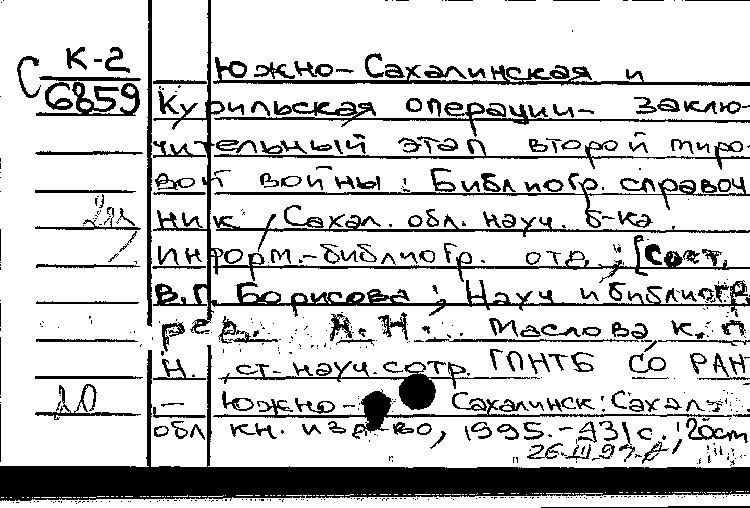 С К-2
6859
Южно-Сахалинская и
Курильская операции- заклю-
чительный этап второй миро-
вой войны : Библиогр. справоч
ник / Сахал. обл. науч. б-ка.
Информ.-библиогр. отд. ; [Сост.
В.Г. Борисова ; Науч и библиогр
ред. А.Н. Маслова к. п
н. , ст. науч. сотр. ГПНТБ СО РАН
20
.— Южно- Сахалинск : Сахал.
обл кн. изд-во, 1995.- с. ; 20см